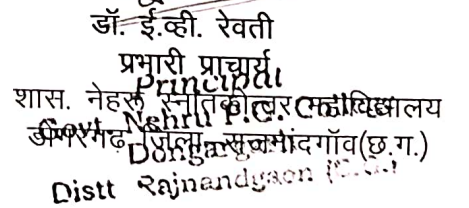 डॉ. ई.व्ही. रेवती
प्रभारी प्राचार्य
Principal
शास. नेहरू स्नातकोत्तर महाविद्यालय
Govt. Nehru P.G. College
डोंगरगढ़ जिला-राजनांदगाँव(छ.ग.)
Dongargarh
Distt Rajnandgaon (C.G.)